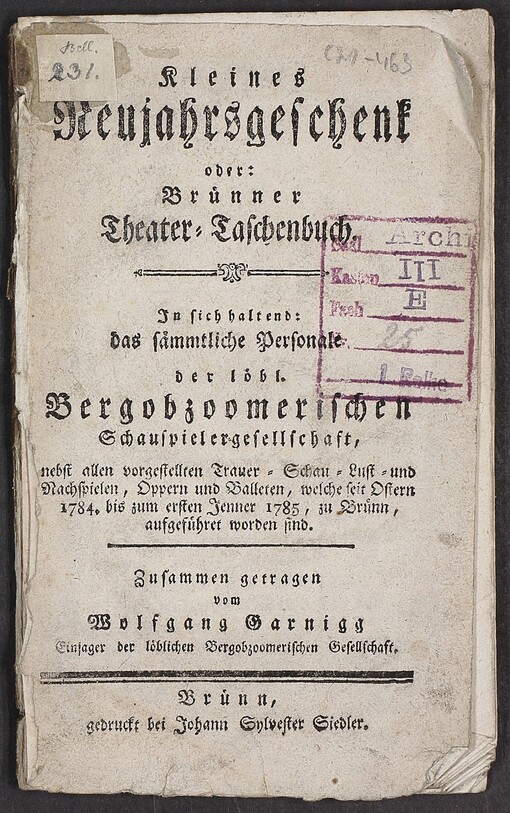 Bell.
231.
Kleines
Neujahrsgeschenk
oder:
Brünner
Theater-Taschenbuch.
Archi
Kasten III
Fach E
25
1 Reihe
In sich haltend:
das sämmtliche Personale
der löbl.
Bergobzoomerischen
Schauspielergesellschaft,
nebst allen vorgestellten Trauer- Schau- Lust- und
Nachspielen, Oppern und Balleten, welche seit Ostern
1784. bis zum ersten Jenner 1785, zu Brünn,
aufgeführet worden sind.
Zusammen getragen
vom
Wolfgang Garnigg
Einsager der löblichen Bergobzoomerischen Gesellschaft.
Brünn,
gedruckt bei Johann Sylvester Siedler.